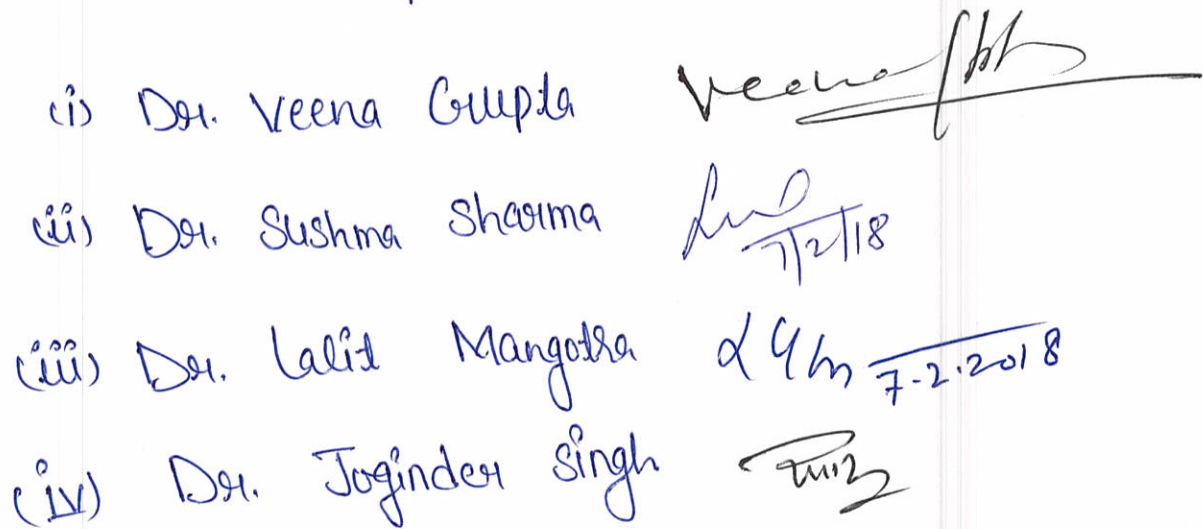 (i) Dr. Veena Gupta Veena
(ii) Dr. Sushma Sharma 7/2/18
(iii) Dr. Lalit Mangotra 7-2-2018
(iv) Dr. Joginder Singh